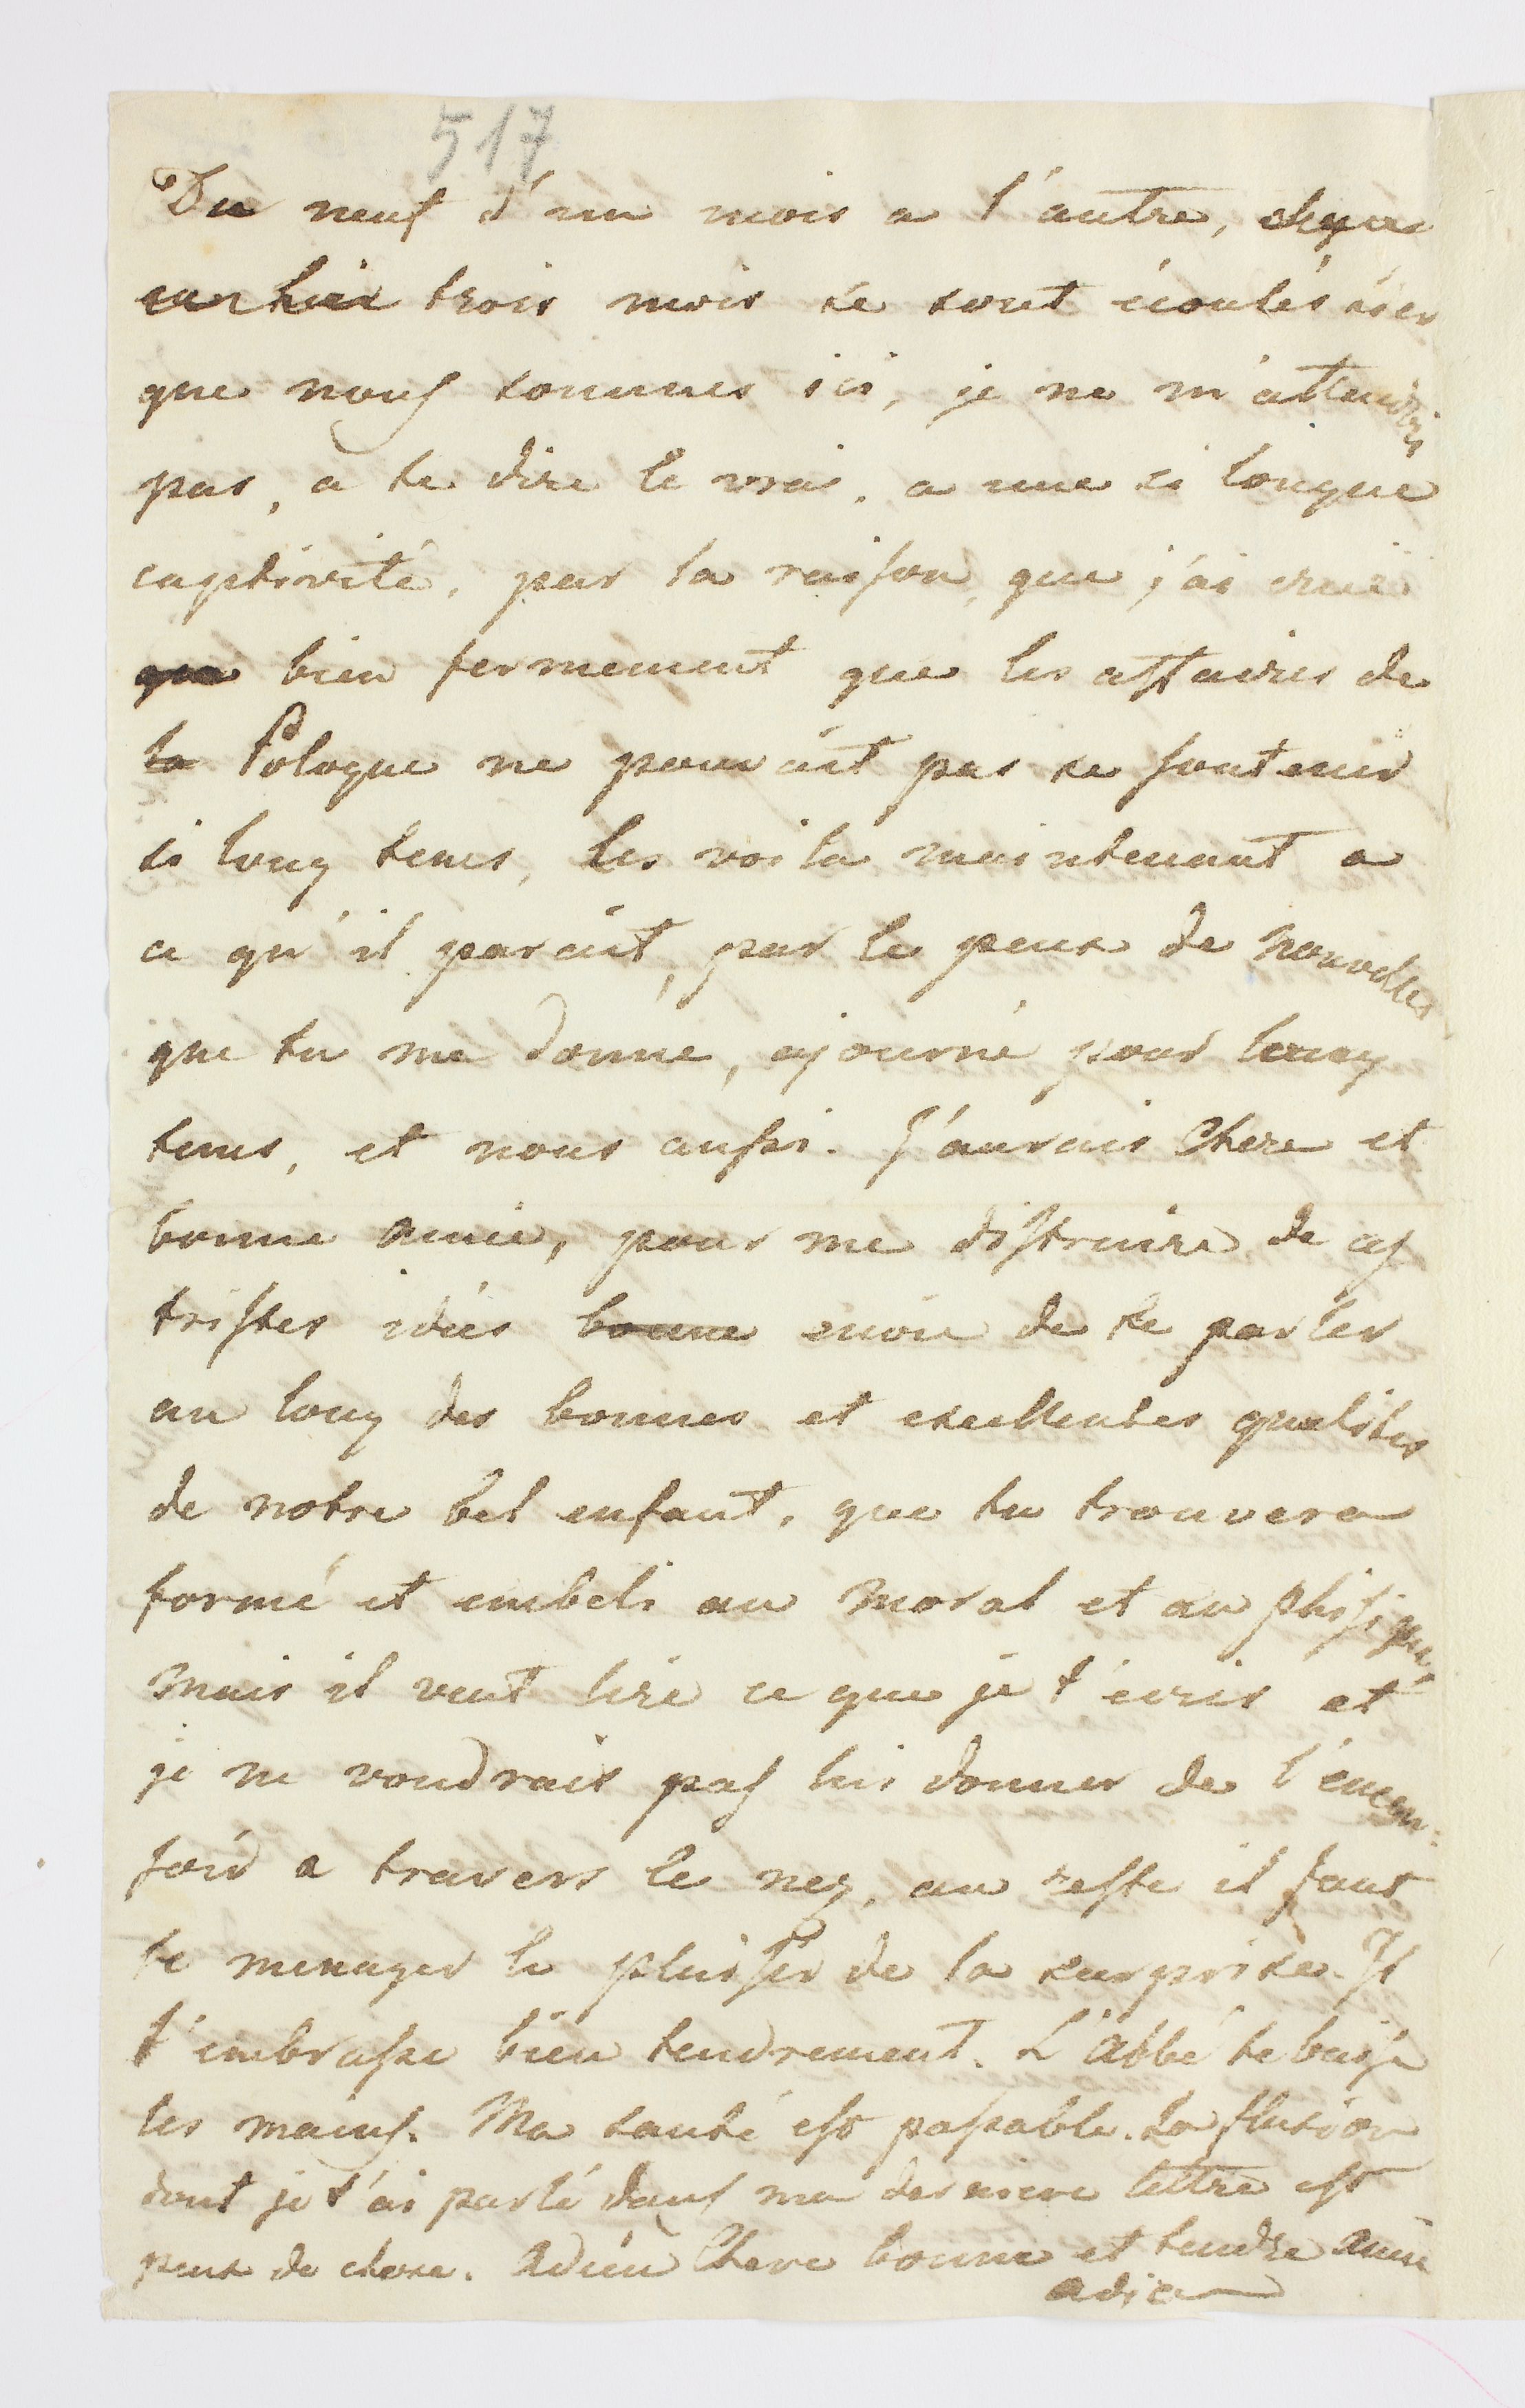 517
Du neuf d'un mois a l'autre,
car hier trois mois se sont écoulés
que nous sommes ici, je ne m'attendais
pas, a te dire le vrai, a une si longue
captivité, par la raison, que j'ai crue
que bien fermement que les affaires de
la Pologne ne pouvait pas se soutenir
si long tems, les voila maintenant a
ce qu'il parait, par le peux de nouvelles
que tu me donne, ajourné pour long
tems, et nous aussi. J'aurais Chere et
bonne amie, pour me distraire de ces
tristes idées bonne envie de te parler
au long des bonnes et exellentes qualites
de notre bel enfant, que tu trouvera
formé et embeli au moral et au phisique,
mais il veut lire ce que je t'écris et
je ne voudrais pas lui donner de l'encen-
soir a travers le nez, au reste il faut
te menager le plaisir de la surprise. Il
t'embrasse bien tendrement. L'abbé te baise
les mains. Ma santé est passable. La fluxion
dont je t'ai parlé dans ma derniere lettre est
peux de chose. Adieu Chere bonne et tendre amie
adieu